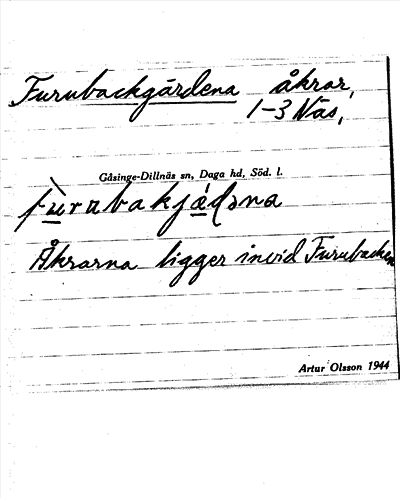 Furubackgärdena åkrar,
1-3 Näs,
Gåsinge-Dillnäs sn, Daga hd, Söd. l.
fu̱̇rubakjä̱dəna
Åkrarna ligger invid Furubacken
Artur Olsson 1944